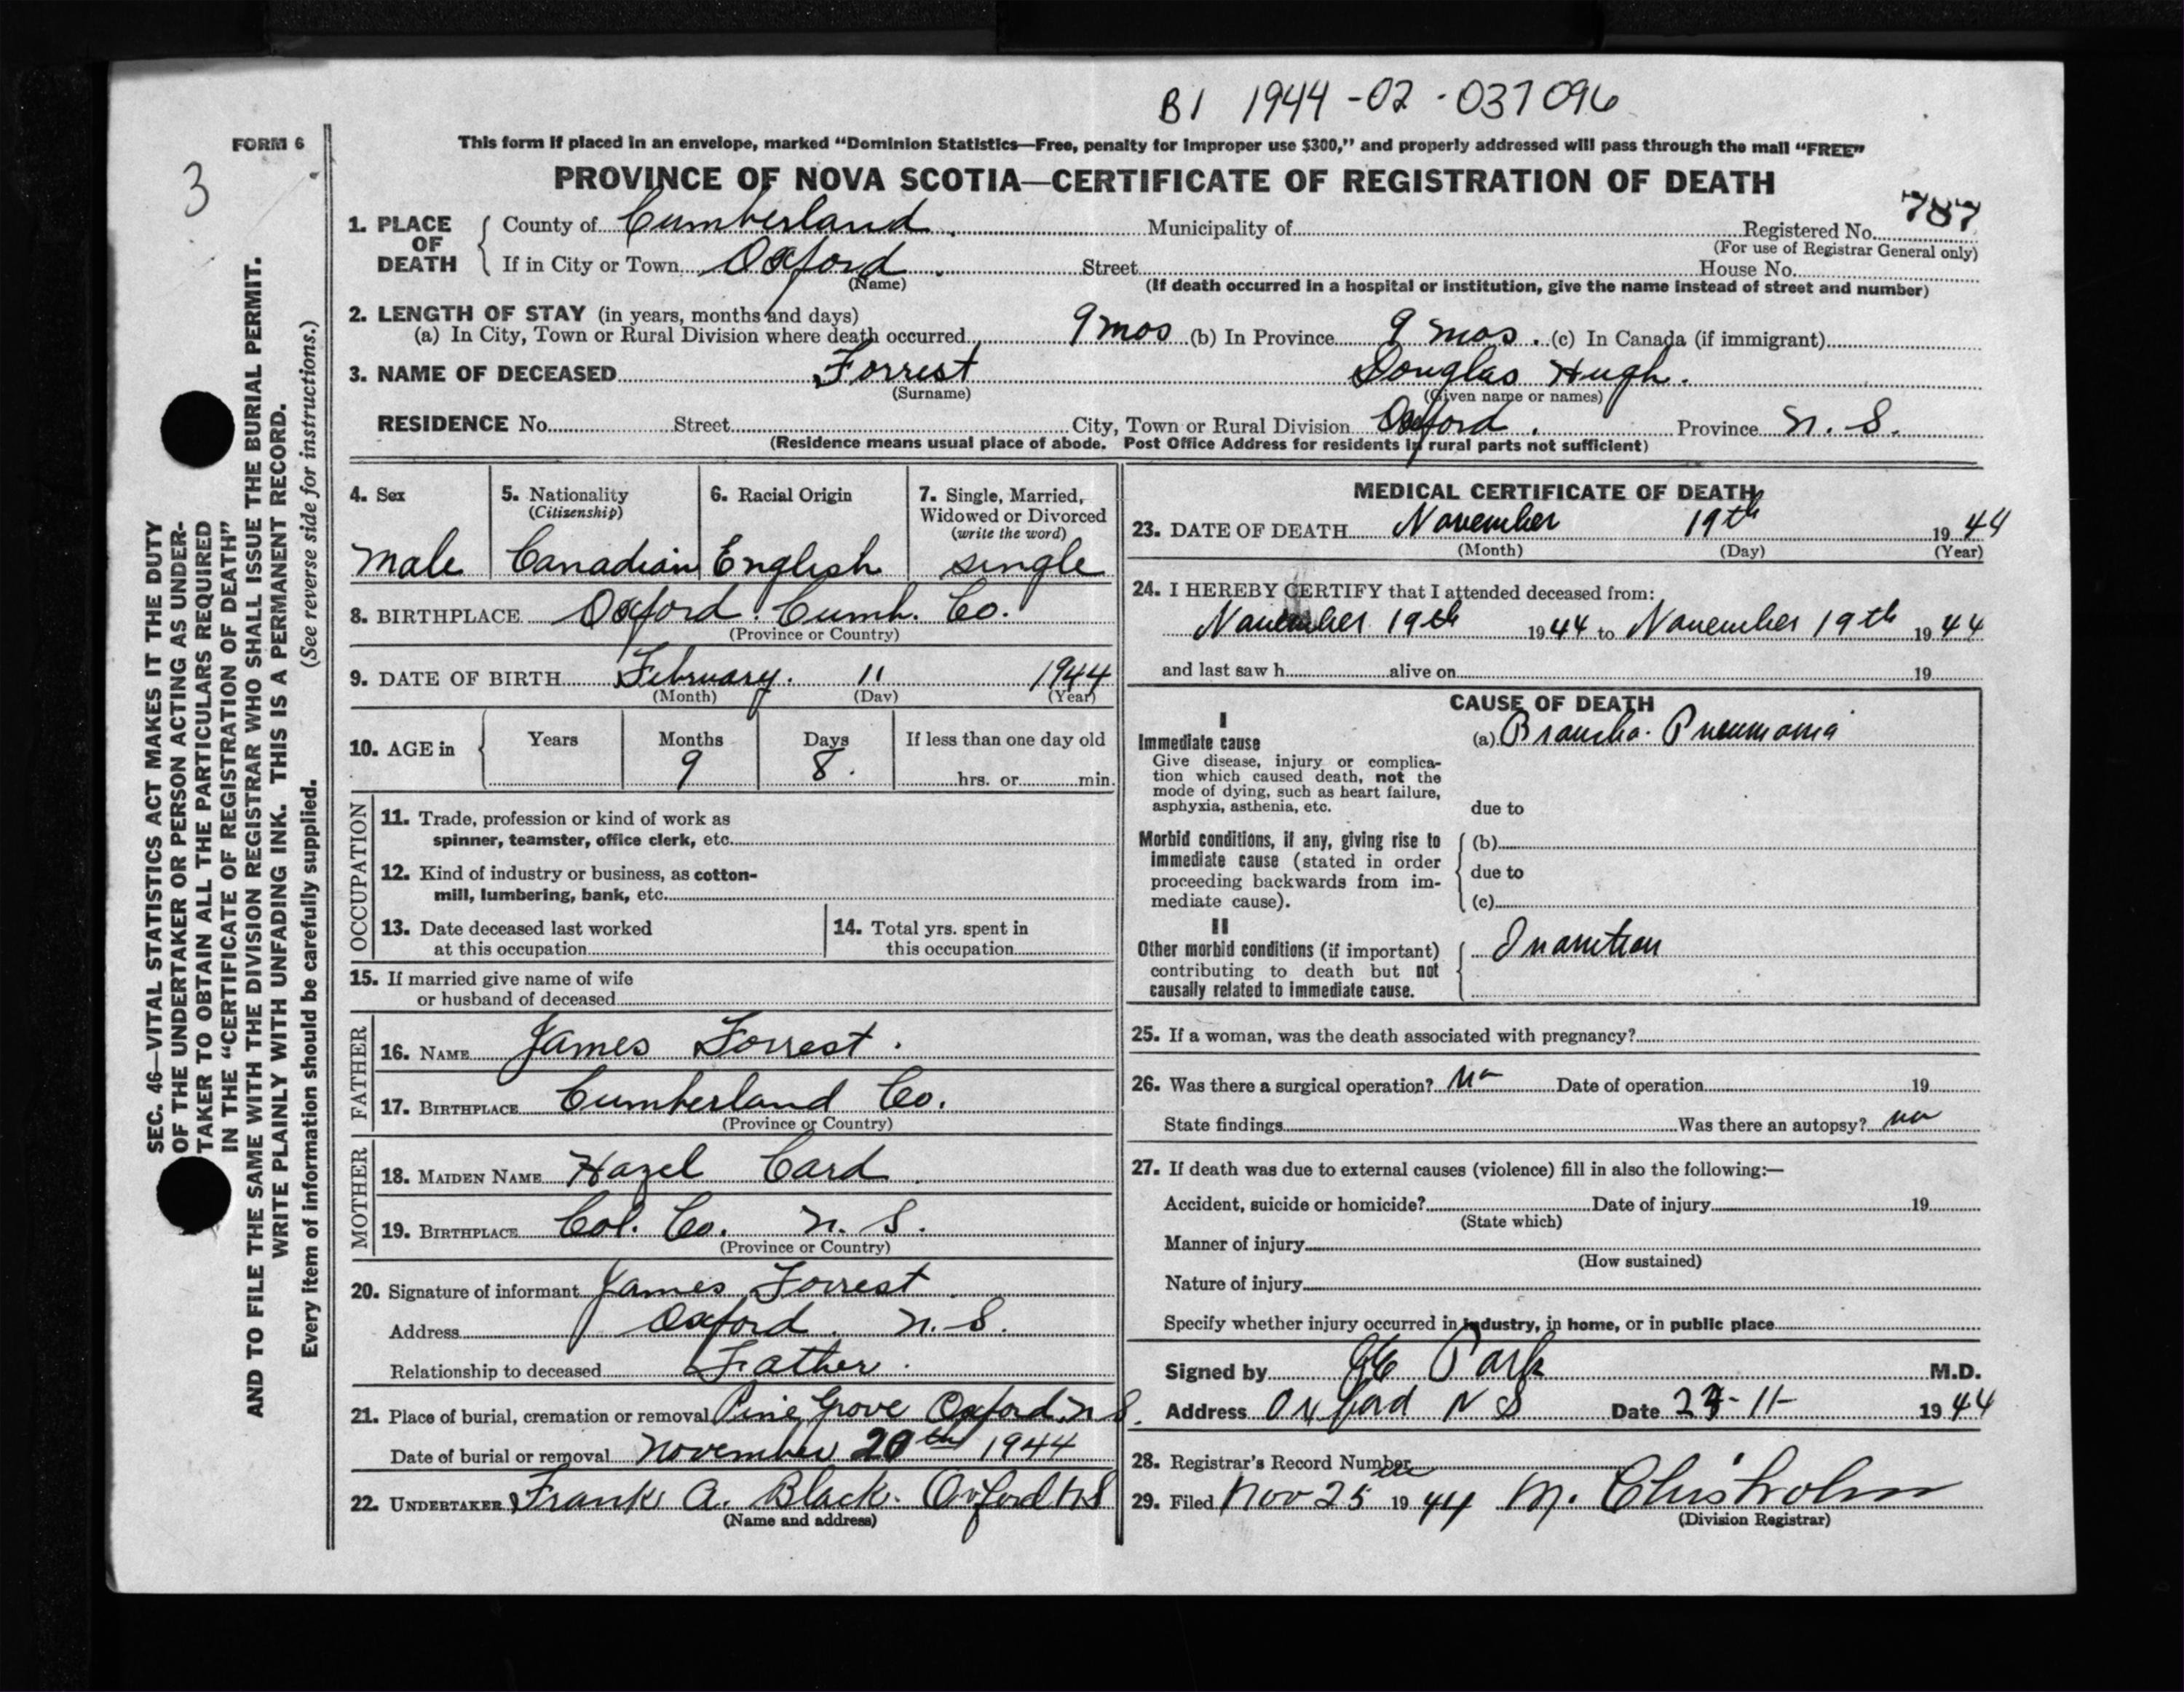 B1 1944-02-037096
FORM 6
3
This form if placed in an envelope, marked “Dominion Statistics—Free, penalty for improper use $300,” and properly addressed will pass through the mail “FREE”
PROVINCE OF NOVA SCOTIA—CERTIFICATE OF REGISTRATION OF DEATH
787
1. PLACE OF DEATH County of Cumberland Municipality of Registered No.
(For use of Registrar General only)
If in City or Town Oxford Street House No.
(Name) (If death occurred in a hospital or institution, give the name instead of street and number)
2. LENGTH OF STAY (in years, months and days)
(a) In City, Town or Rural Division where death occurred 9 mos (b) In Province 9 mos. (c) In Canada (if immigrant)
3. NAME OF DECEASED Forrest Douglas Hugh.
(Surname) (Given name or names)
RESIDENCE No. Street City, Town or Rural Division Oxford. Province N. S.
(Residence means usual place of abode. Post Office Address for residents in rural parts not sufficient)
4. Sex 5. Nationality (Citizenship) 6. Racial Origin 7. Single, Married, Widowed or Divorced (write the word)
male Canadian English single
8. BIRTHPLACE Oxford. Cumb. Co.
(Province or Country)
9. DATE OF BIRTH February. 11 1944
(Month) (Day) (Year)
10. AGE in Years Months Days If less than one day old
9 8. hrs. or min.
OCCUPATION
11. Trade, profession or kind of work as
spinner, teamster, office clerk, etc.
12. Kind of industry or business, as cotton-
mill, lumbering, bank, etc.
13. Date deceased last worked at this occupation 14. Total yrs. spent in this occupation
15. If married give name of wife
or husband of deceased
FATHER
16. NAME James Forrest.
17. BIRTHPLACE Cumberland Co.
(Province or Country)
MOTHER
18. MAIDEN NAME Hazel Card.
19. BIRTHPLACE Col. Co. N. S.
(Province or Country)
20. Signature of informant James Forrest.
Address Oxford. N. S.
Relationship to deceased Father.
21. Place of burial, cremation or removal Pine Grove Oxford. N S.
Date of burial or removal November 20th 1944
22. UNDERTAKER Frank A. Black. Oxford N S
(Name and address)
MEDICAL CERTIFICATE OF DEATH
23. DATE OF DEATH November 19th 1944
(Month) (Day) (Year)
24. I HEREBY CERTIFY that I attended deceased from:
November 19th 1944 to November 19th 1944
and last saw h alive on 19
CAUSE OF DEATH
I
Immediate cause (a) Broncho-Pneumonia
Give disease, injury or complica-
tion which caused death, not the
mode of dying, such as heart failure,
asphyxia, asthenia, etc. due to
Morbid conditions, if any, giving rise to (b)
immediate cause (stated in order
proceeding backwards from im- due to
mediate cause). (c)
II
Other morbid conditions (if important) Inanition
contributing to death but not
causally related to immediate cause.
25. If a woman, was the death associated with pregnancy?
26. Was there a surgical operation? no Date of operation 19
State findings Was there an autopsy? no
27. If death was due to external causes (violence) fill in also the following:—
Accident, suicide or homicide? Date of injury 19
(State which)
Manner of injury
(How sustained)
Nature of injury
Specify whether injury occurred in industry, in home, or in public place
Signed by Park M.D.
Address Oxford N S Date 11- 1944
28. Registrar's Record Number
29. Filed Nov 25th 1944 M. Chisholm
(Division Registrar)
SEC. 46—VITAL STATISTICS ACT MAKES IT THE DUTY
OF THE UNDERTAKER OR PERSON ACTING AS UNDER-
TAKER TO OBTAIN ALL THE PARTICULARS REQUIRED
IN THE “CERTIFICATE OF REGISTRATION OF DEATH”
AND TO FILE THE SAME WITH THE DIVISION REGISTRAR WHO SHALL ISSUE THE BURIAL PERMIT.
WRITE PLAINLY WITH UNFADING INK. THIS IS A PERMANENT RECORD.
Every item of information should be carefully supplied. (See reverse side for instructions.)